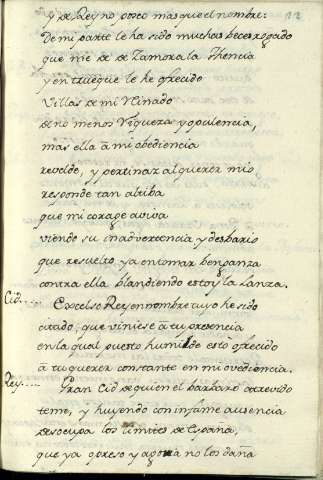 y de Rey no poseo mas que el nombre: 12
De mi parte le ha sido muchas beces rogado
que me dè de Zamora la thencia
y en trueque le he ofrecido
Villas de mi Reinado
de no menos rigueza y opulencia,
mas ella à mi obediencia
revelde, y pertinaz al querer mio
responde tan altiba
que mi corage aviva
viendo su inadvertencia y desbario
que resuelto, ya en tomar benganza
contra ella blandiendo estoy la lanza.
Cid.... Excelso Rey en nombre tuyo he sido
citado, que viniese à tu presencia
en la qual puesto humilde estò ofrecido
à tu querer constante en mi ovediencia.
Rey.... Gran Cid de quien el barbaro atrevido
teme, y huyendo con infame ausencia
desocupa los limites de España,
que ya opreso y agora no los daña